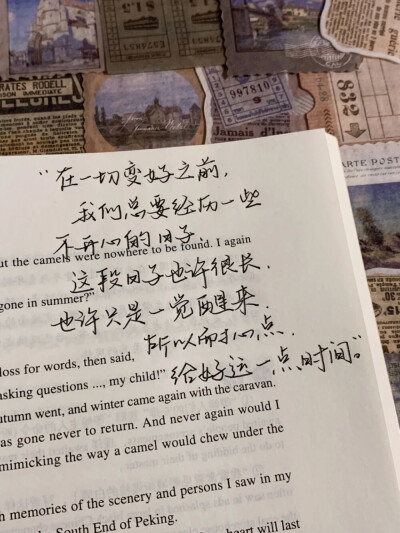 RATES RODELL
IMMEDIATE
997810
Jamais d'im
832
ARTE POSTA
“在一切变好之前,
我们总要经历一些
不开心的日子.
ut the camels were nowhere to be found. I again
这段日子也许很长.
gone in summer?”
也许只是一觉醒来.
loss for words, then said,
所以耐心点.
asking questions ..., my child!”
给好运一点时间。”
utumn went, and winter came again with the caravan.
as gone never to return. And never again would I
mimicking the way a camel would chew under the
h memories of the scenery and persons I saw in my
South End of Peking.
heart will last